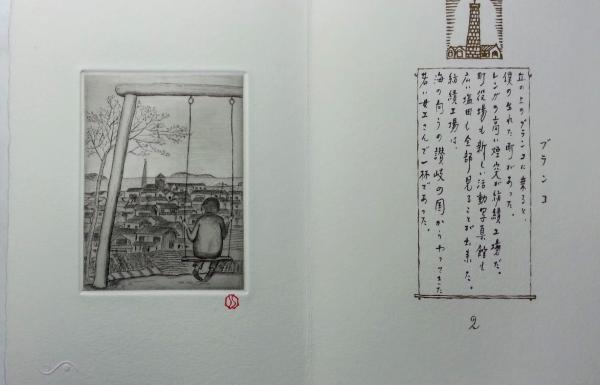 ブランコ
丘の上のブランコに乗ると、
僕の生れた町があった。
レンガの高い煙突が紡績工場だ。
町役場も新しい活動写真館も
広い塩田も全部見ることが出来た。
紡績工場は、
海の向うの讃岐の国からやってきた
若い女工さんで一杯であった。
2